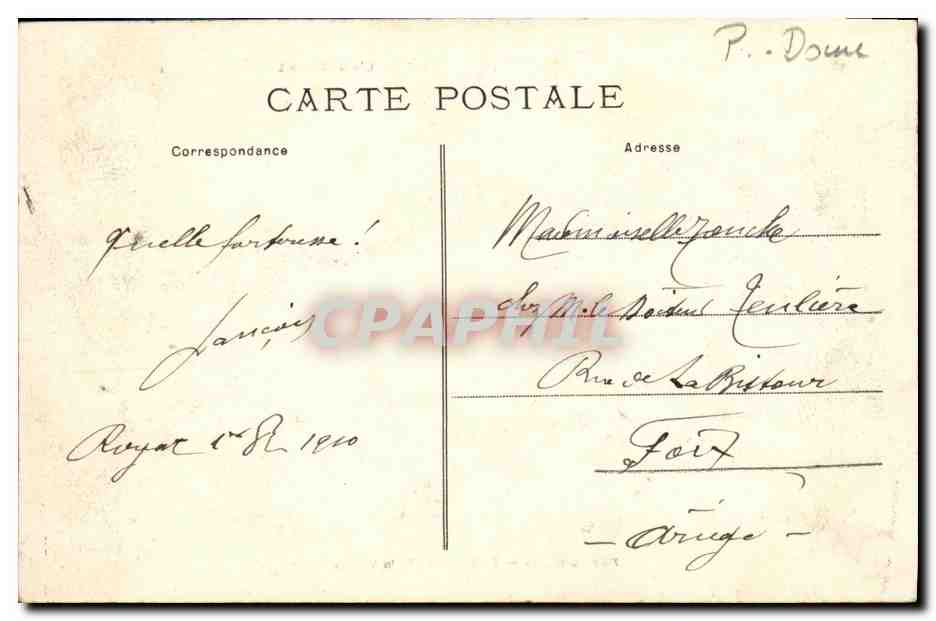 P.-Dome
CARTE POSTALE
Correspondance
Adresse
Quelle fortune !
François
Royat 1er 1910
Mademoiselle
chez M. le Docteur Teulière
Rue de La Bistour
Foix
- Ariège -
CPAPHIL